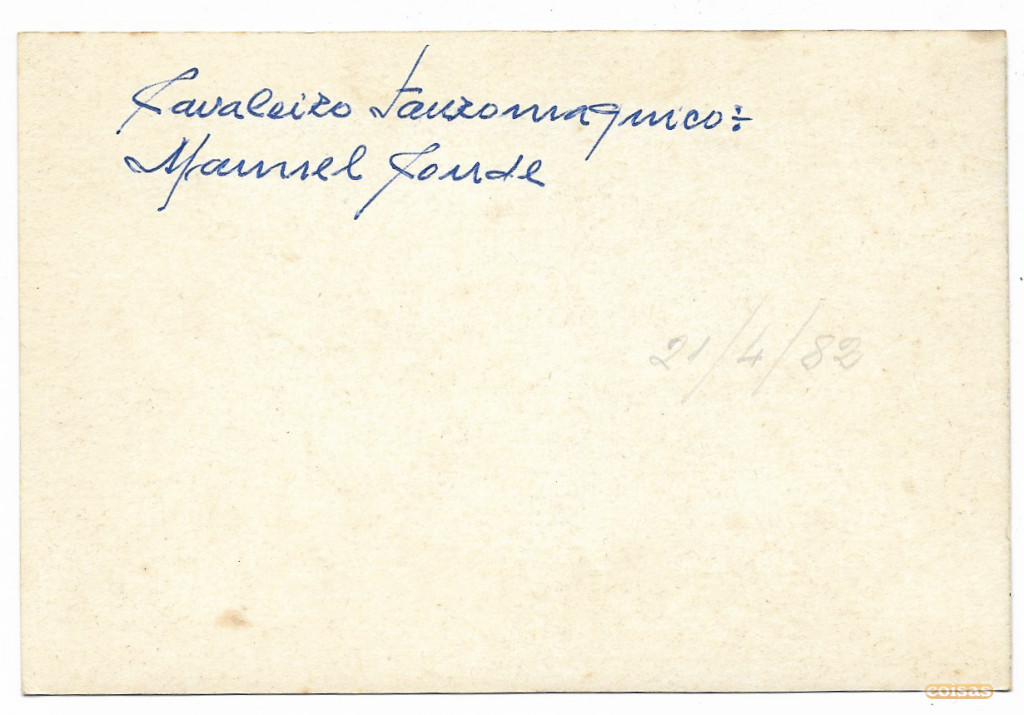 Cavaleiro Tauromaquico:
Manuel Conde
21/4/82
coisas